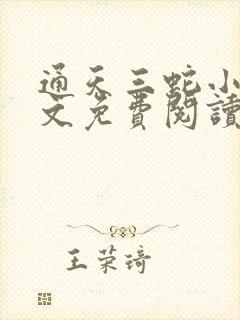 通天三蛇小
文免費閱讀
王荣琦